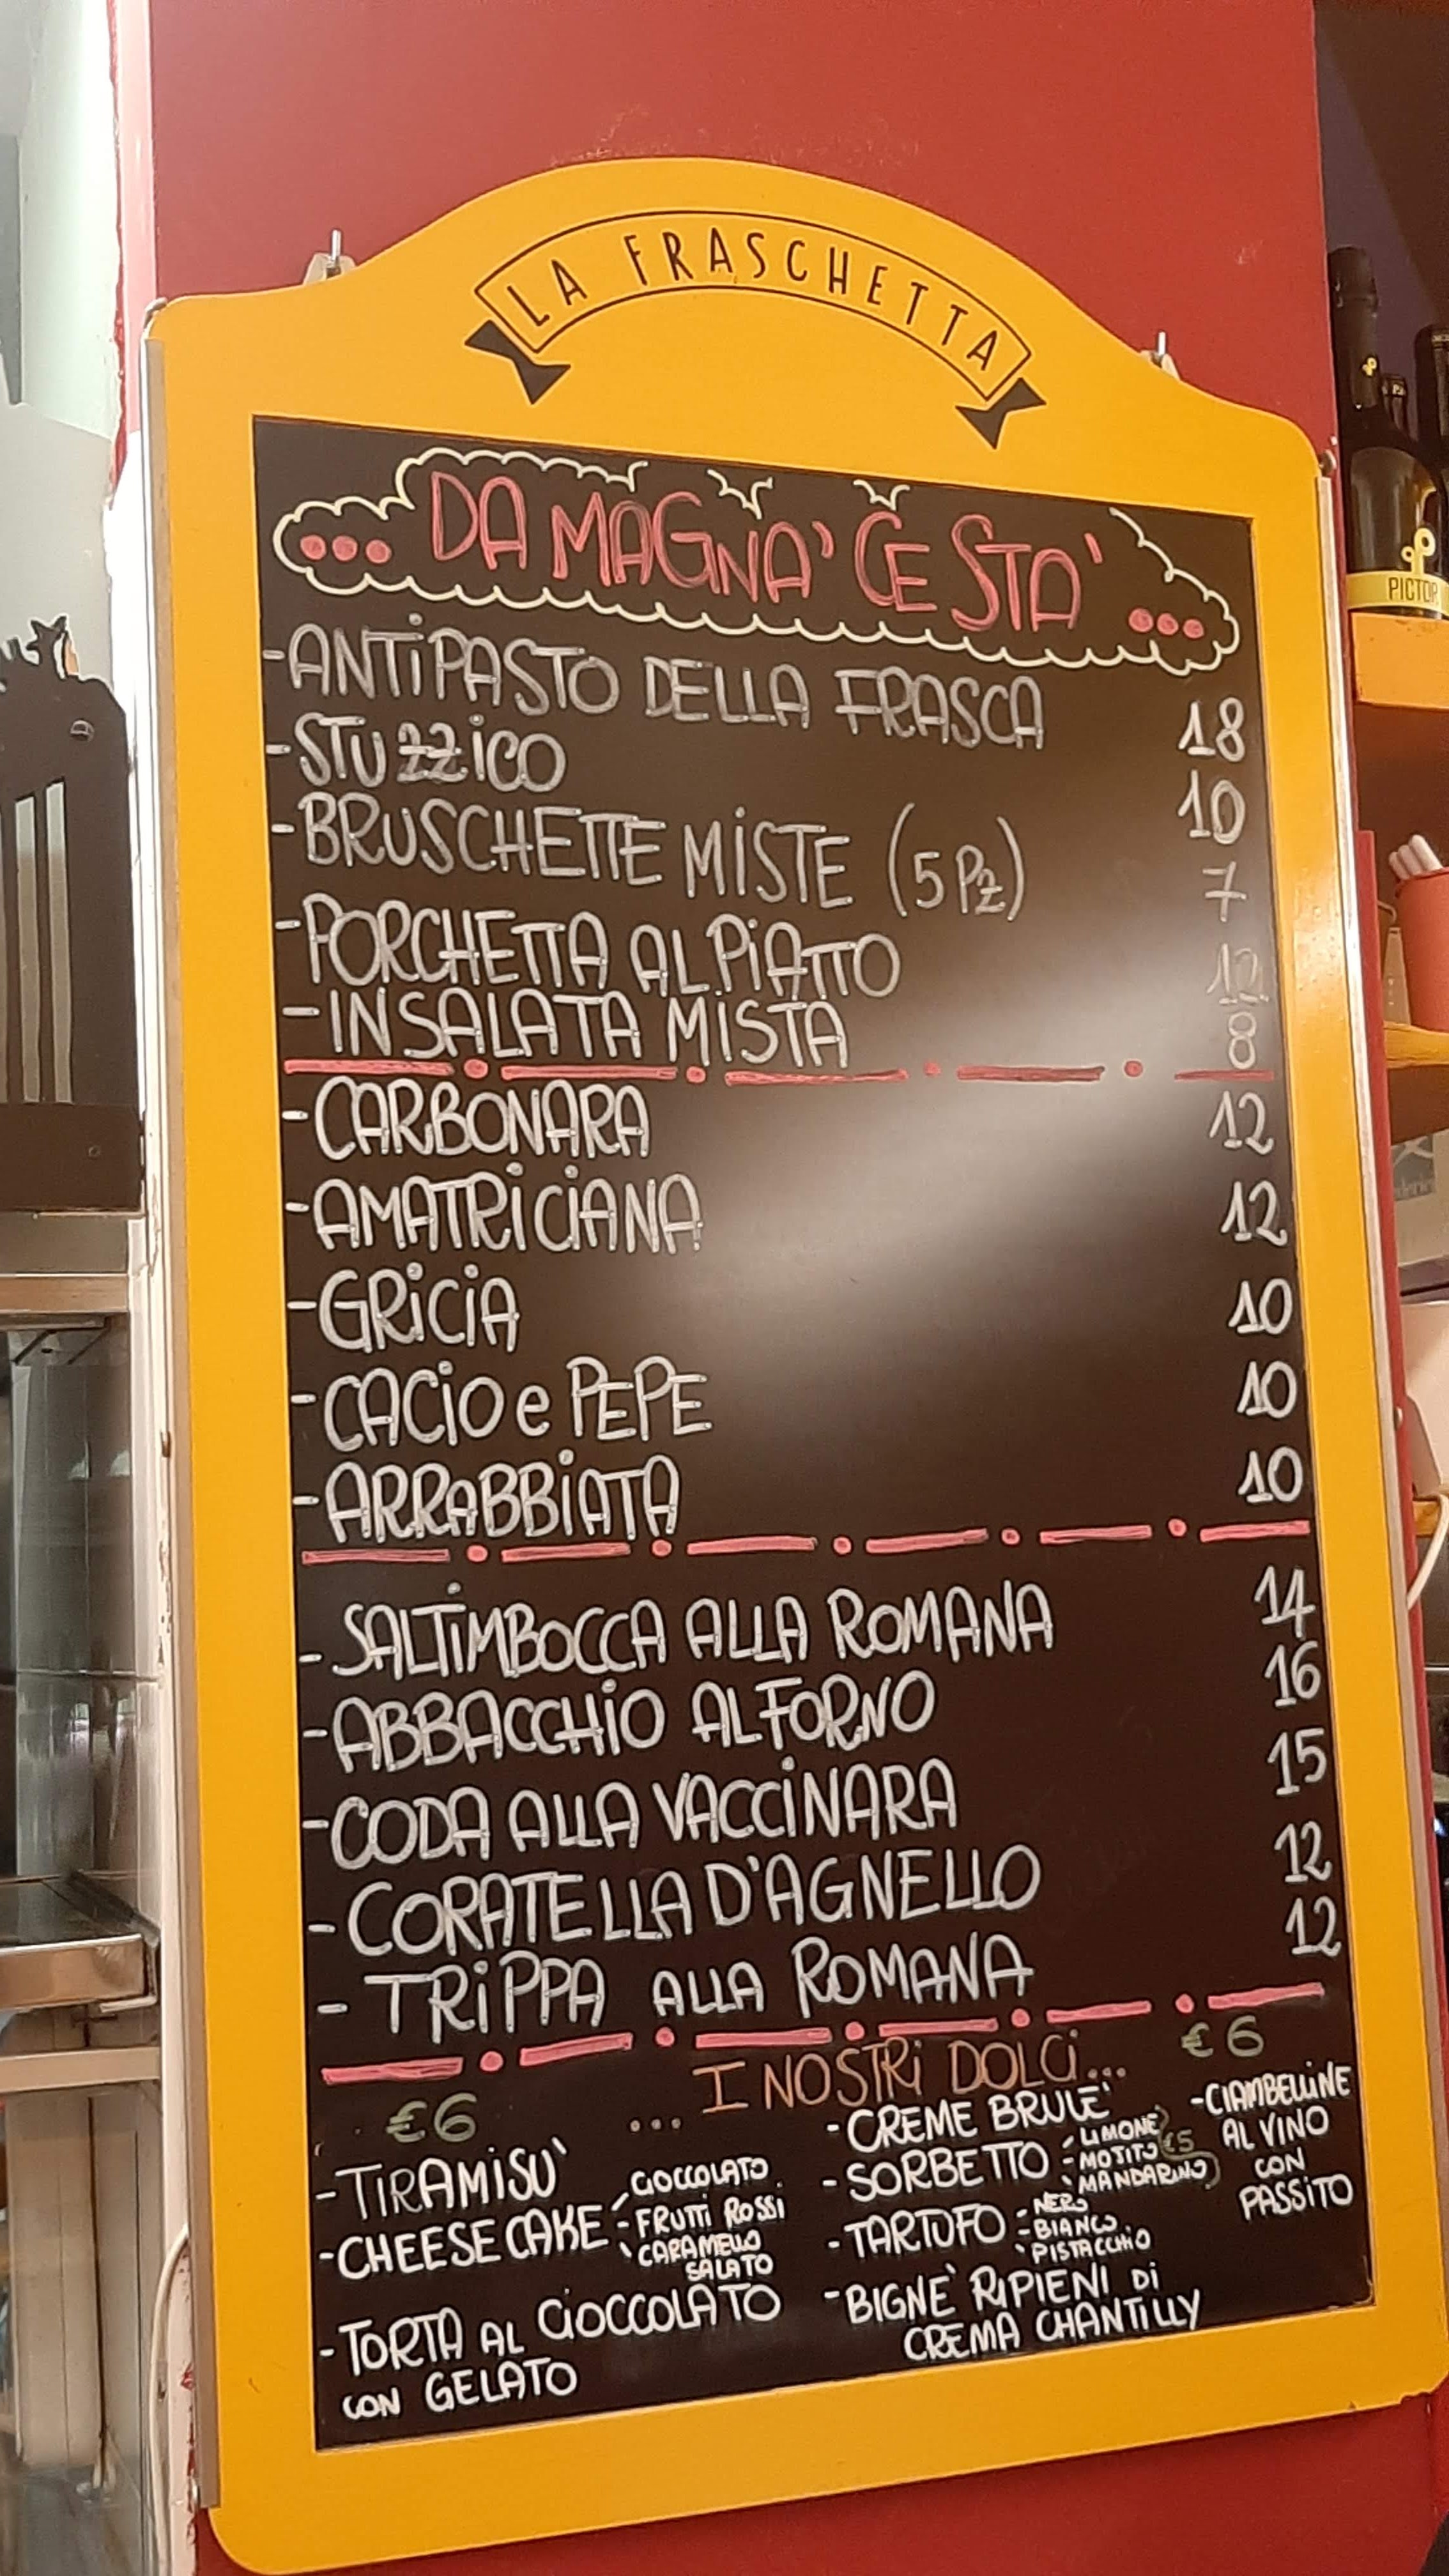 LA FRASCHETTA
... DA MAGNA' CE STA' ...
-ANTIPASTO DELLA FRASCA 18
-STUZZICO 10
-BRUSCHETTE MISTE (5 Pz) 7
-PORCHETTA AL PIATTO 12
-INSALATA MISTA 8
-CARBONARA 12
-AMATRICIANA 12
-GRICIA 10
-CACIO e PEPE 10
-ARRABBIATA 10
-SALTIMBOCCA ALLA ROMANA 14
-ABBACCHIO AL FORNO 16
-CODA ALLA VACCINARA 15
-CORATELLA D'AGNELLO 12
-TRIPPA ALLA ROMANA 12
... I NOSTRI DOLCI ...
€6
-TIRAMISU'
-CHEESE CAKE
-CIOCCOLATO
-FRUTTI ROSSI
-CARAMELLO
SALATO
-TORTA AL CIOCCOLATO
CON GELATO
-CREME BRULE'
-SORBETTO
-LIMONE
-MOJITO
-MANDARINO
€5
-TARTUFO
-NERO
-BIANCO
-PISTACCHIO
-BIGNE' RIPIENI DI
CREMA CHANTILLY
€6
-CIAMBELLINE
AL VINO
CON
PASSITO